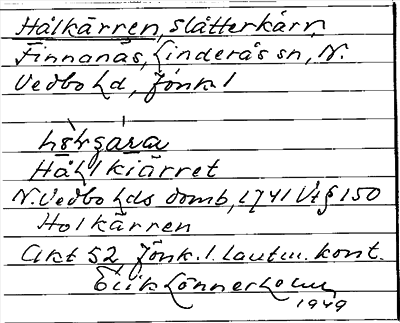 Hålkärren, slåtterkärr,
Finnanäs, Linderås sn, N.
Vedbo hd, Jönk. l
Håhlkiärret
N. Vedbo hds domb, 1741 Vt § 150
Holkärren
Akt 52 Jönk. l. lantm. kont.
Erik Lönnerholm
1949